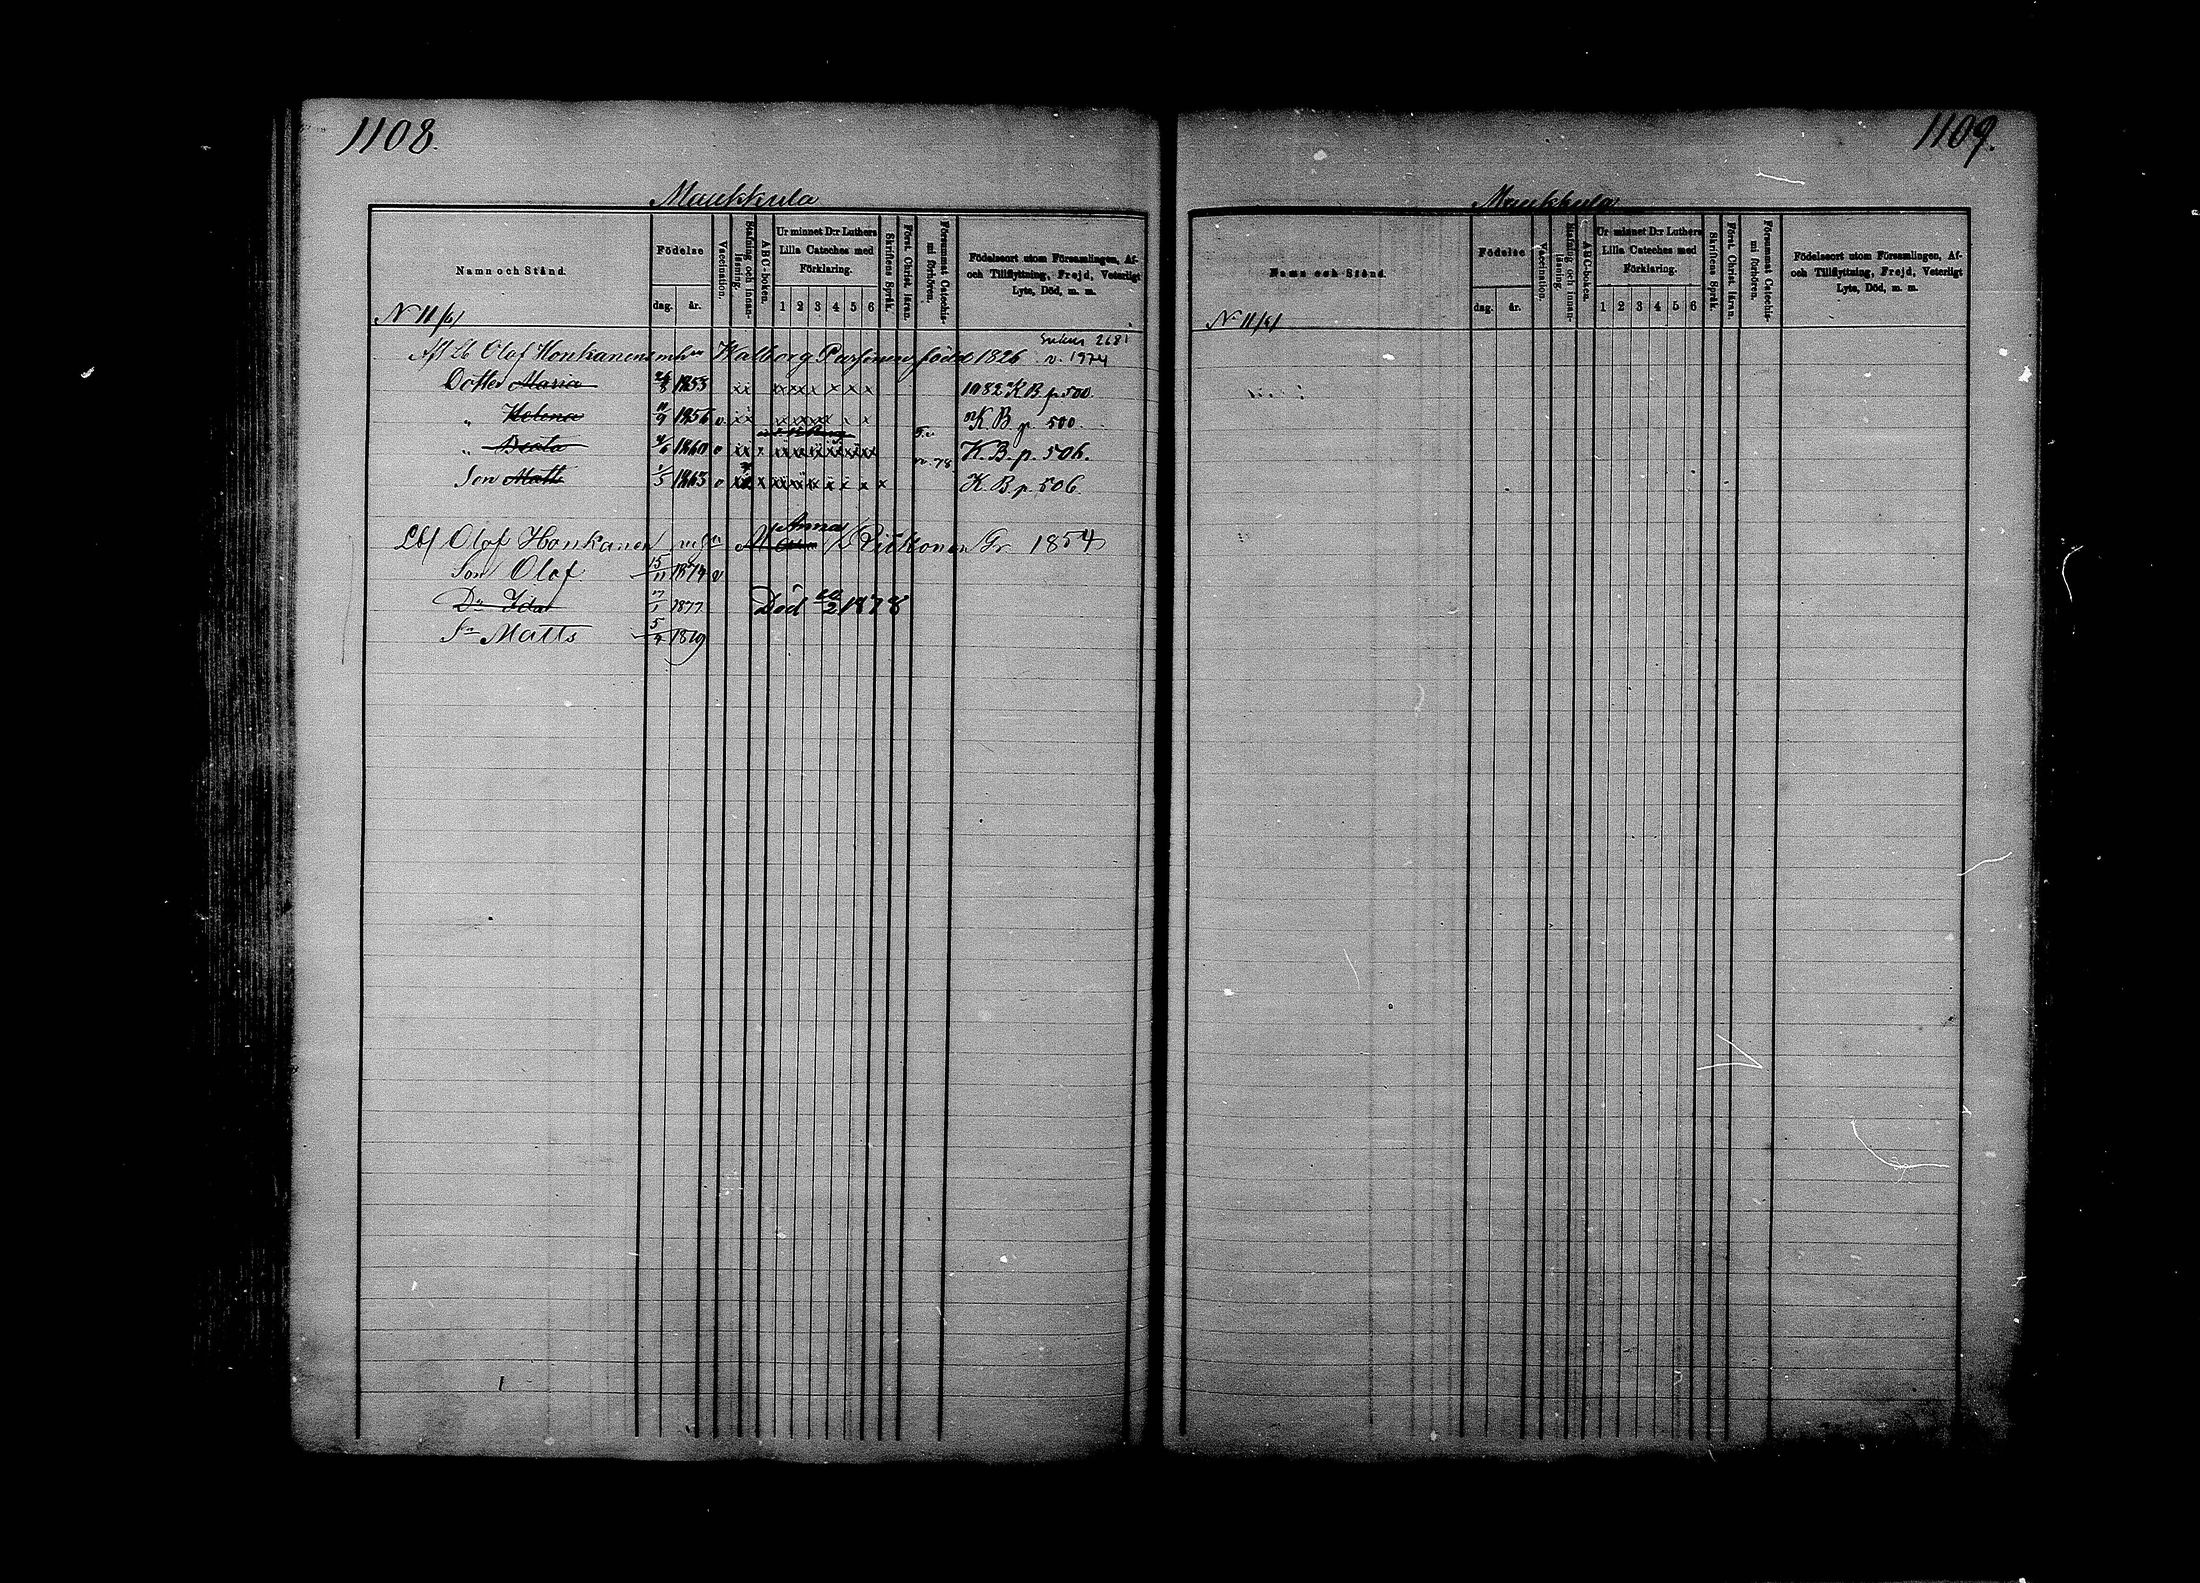 1108.
Maukkula
Namn och Stånd.
Födelse
dag. år.
Vaccination.
Stafning och innanläsning.
ABC-boken.
Ur minnet D:r Luthers Lilla Cateches med Förklaring.
1 2 3 4 5 6
Skriftens Språk.
Först. Christ. läran.
Försummat Catechismi förhören.
Födelseort utom Församlingen, Af- och Tillflyttning, Frejd, Veterligt Lyte, Död, m. m.
N 11/6/
2681
Olof Honkanens Walborg född 1826 v. 1974
Dotter Maria 1853 xx xxx x x x x 1082 K B p 500.
" Helena 1856 v xx x K B p 500
" Beata 1860 v K. B. p. 506.
v. 78.
Son Matts 1863 v K. B. p. 506.
Anna
Lbf Olof Honkanen Gr 1854
Son Olof 15/11 1874 v
Dr Ida 1877 Död 20/2 1878
Sn Matts 1879
1109.
Maukkula
Namn och Stånd.
Födelse
dag. år.
Vaccination.
Stafning och innanläsning.
ABC-boken.
Ur minnet D:r Luthers Lilla Cateches med Förklaring.
1 2 3 4 5 6
Skriftens Språk.
Först. Christ. läran.
Försummat Catechismi förhören.
Födelseort utom Församlingen, Af- och Tillflyttning, Frejd, Veterligt Lyte, Död, m. m.
N 11/6/